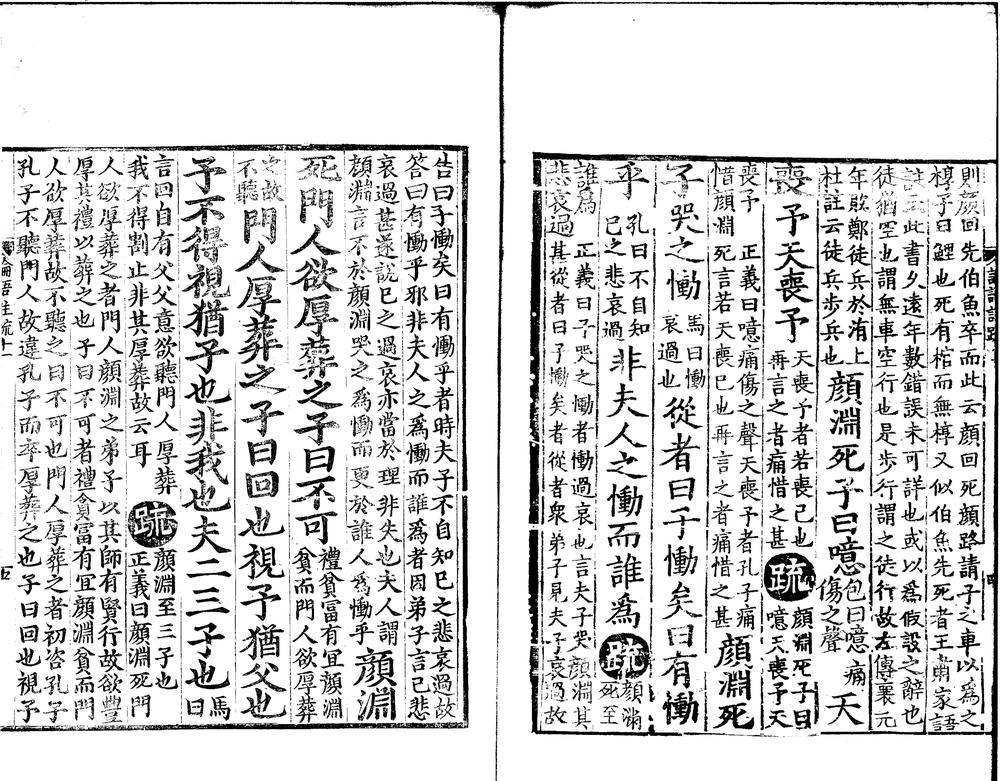 則顏回先伯魚卒而此云顏回死顏路請子之車以爲之
椁子曰鯉也死有棺而無椁又似伯魚先死者王肅家語
註云此書久遠年數錯誤未可詳也或以爲假設之辭也
徒猶空也謂無車空行也是步行謂之徒行故左傳襄元
年敗鄭徒兵於洧上
杜註云徒兵步兵也
顏淵死子曰噫
包曰噫痛
傷之聲
天
喪予天喪予
天喪予者若喪己也
再言之者痛惜之甚
疏
顏淵死子曰
噫天喪予天
喪予 正義曰噫痛傷之聲天喪予者孔子痛
惜顏淵死言若天喪己也再言之者痛惜之甚
顏淵死
子哭之慟
馬曰慟
哀過也
從者曰子慟矣曰有慟
乎
孔曰不自知
己之悲哀過
非夫人之慟而誰爲
疏
顏淵
死至
誰爲 正義曰子哭之慟者慟過哀也言夫子哭顏淵其
悲哀過甚從者曰子慟矣者從者衆弟子見夫子哀過故
告曰子慟矣曰有慟乎者時夫子不自知己之悲哀過故
答曰有慟乎邪非夫人之爲慟而誰爲者因弟子言己悲
哀過甚遂說己之過哀亦當於理非失也夫人謂
顏淵言不於顏淵哭之爲慟而更於誰人爲慟乎
顏淵
死門人欲厚葬之子曰不可
禮貧富有宜顏淵
貧而門人欲厚葬
之故
不聽
門人厚葬之子曰回也視予猶父也
予不得視猶子也非我也夫二三子也
馬
曰
言回自有父父意欲聽門人厚葬
我不得割止非其厚葬故云耳
疏
顏淵至三子也
正義曰顏淵死門
人欲厚葬之者門人顏淵之弟子以其師有賢行故欲豐
厚其禮以葬之也子曰不可者禮貧富有宜顏淵貧而門
人欲厚葬故不聽之曰不可也門人厚葬之者初咨孔子
孔子不聽門人故違孔子而卒厚葬之也子曰回也視予
論語注疏十一
五